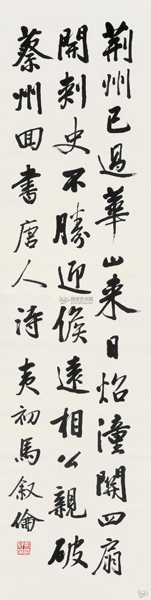 荊州已過華山来日炤潼關四扇
開刺史不勝迎候遠相公親破
蔡州囬書唐人诗夷初馬叙倫